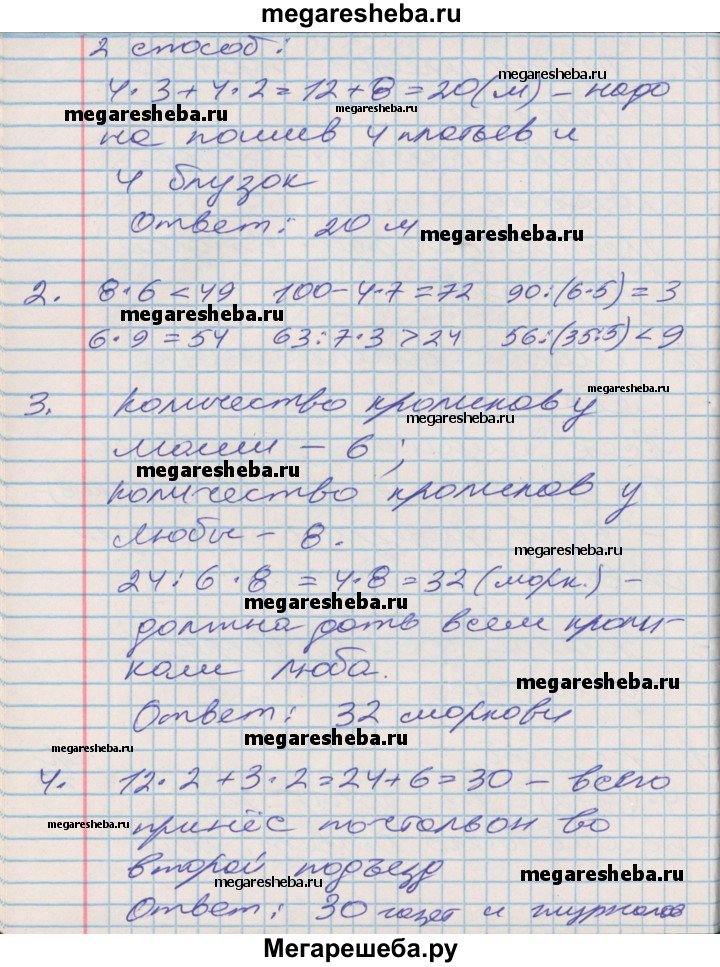 megaresheba.ru
2 способ:
4 · 3 + 4 · 2 = 12 + 8 = 20 (м) – надо
megaresheba.ru
megaresheba.ru
megaresheba.ru
на пошив 4 платьев и
4 блузок
Ответ: 20 м
megaresheba.ru
2. 8 · 6 < 49 100 – 4 · 7 = 72 90 : (6 · 5) = 3
megaresheba.ru
megaresheba.ru
6 · 9 = 54 63 : 7 · 3 > 24 56 : (35 : 5) < 9
megaresheba.ru
megaresheba.ru
3. Количество кроликов у
megaresheba.ru
megaresheba.ru
Маши – 6 ;
megaresheba.ru
количество кроликов у
Любы – 8.
megaresheba.ru
24 : 6 · 8 = 4 · 8 = 32 (морк.) –
megaresheba.ru
megaresheba.ru
должна дать всем кроли-
кам Люба.
megaresheba.ru
Ответ: 32 моркови
megaresheba.ru
megaresheba.ru
4. 12 · 2 + 3 · 2 = 24 + 6 = 30 – всего
megaresheba.ru
megaresheba.ru
принёс почтальон во
второй подъезд
megaresheba.ru
megaresheba.ru
Ответ: 30 газет и журналов
Мегарешеба.ру